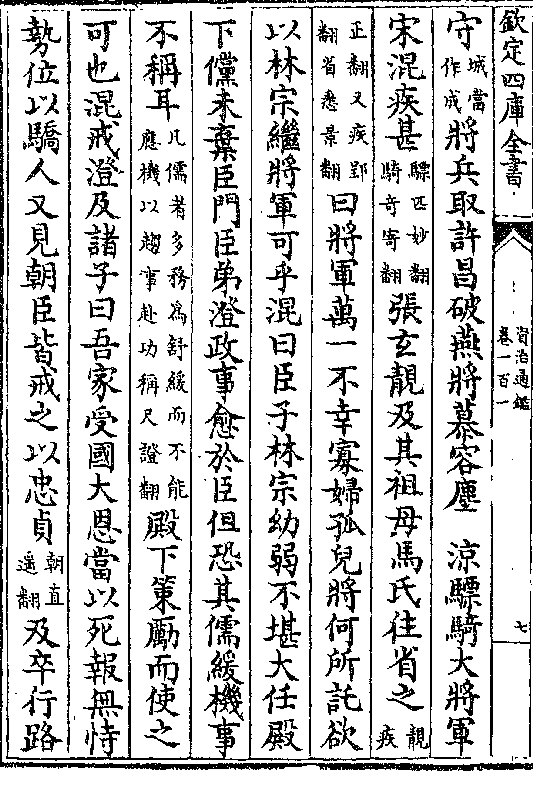 欽定四庫全書
資治通鑑
卷一百一
七
守城當作成將兵取許昌破燕將慕容塵 涼驃騎大將軍
宋混疾甚驃匹妙翻騎奇寄翻張玄靚及其祖母馬氏往省之靚疾
正翻又疾郢翻省悉景翻曰將軍萬一不幸寡婦孤兒將何所託欲
以林宗繼將軍可乎混曰臣子林宗幼弱不堪大任殿
下儻未棄臣門臣弟澄政事愈於臣但恐其儒緩機事
不稱耳凡儒者多務為舒緩而不能應機以趨事赴功稱尺證翻殿下策勵而使之
可也混戒澄及諸子曰吾家受國大恩當以死報無恃
勢位以驕人又見朝臣皆戒之以忠貞朝直遥翻及卒行路